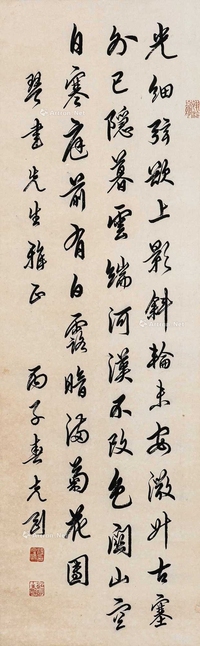 光细弦欲上影斜轮未安微升古塞
外已隐暮云端河汉不改色关山空
自寒庭前有白露暗满菊花团
琴书先生雅正 丙子春